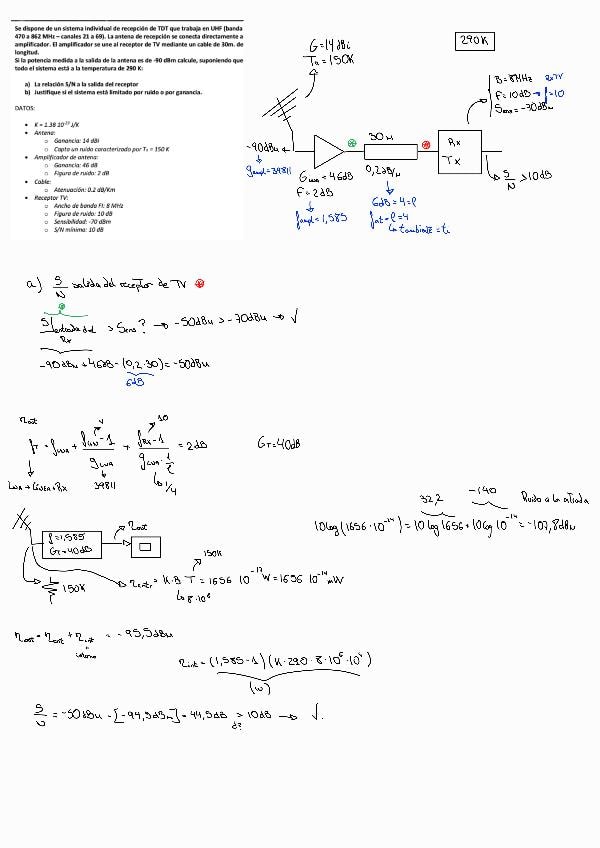 Se dispone de un sistema individual de recepción de TDT que trabaja en UHF (banda
470 a 862 MHz – canales 21 a 69). La antena de recepción se conecta directamente a
amplificador. El amplificador se une al receptor de TV mediante un cable de 30m. de
longitud.
Si la potencia medida a la salida de la antena es de -90 dBm calcule, suponiendo que
todo el sistema está a la temperatura de 290 K:
a) La relación S/N a la salida del receptor
b) Justifique si el sistema está limitado por ruido o por ganancia.
DATOS:
• K = 1.38 10⁻²³ J/K
• Antena:
o Ganancia: 14 dBi
o Capta un ruido caracterizado por Tₐ = 150 K
• Amplificador de antena:
o Ganancia: 46 dB
o Figura de ruido: 2 dB
• Cable:
o Atenuación: 0.2 dB/Km
• Receptor TV:
o Ancho de banda FI: 8 MHz
o Figura de ruido: 10 dB
o Sensibilidad: -70 dBm
o S/N mínimo: 10 dB
G=14dBi
Ta=150K
290K
B=8MHz
F=10dB → f=10
Sens=-70dBm
-90dBm
30m
Rx
TV
gampl=39811
GLNA=46dB
F=2dB
fampl=1,585
0,2dB/m
6dB=4=l
fat=l=4
S/N >10dB
a) S/N salida del receptor de TV
S|entrada del Rx > Sens? → -50dBm > -70dBm → √
-90dBm+46dB-(0,2·30)=-50dBm
6dB
fT=fLNA+ (fLIN-1)/gLNA + (fRX-1)/(gLNA·1/l) = 2dB GT=40dB
4
10
LNA+LINEA+RX
39811
1/4
32,2 -140
Ruido a la entrada
10log(1656·10⁻¹⁴)=10log1656+10log10⁻¹⁴=-107,8dBm
f=1,585
GT=40dB
nout
150K
150K
nentr=K·B·T=1656 10⁻¹⁷W=1656 10⁻¹⁴mW
8·10⁶
nout=nent+nint=-95,5dBm
interno
nint=(1,585-1)(K·290·8·10⁶·10⁴)
(W)
S/N=-50dBm-[-94,5dBm]=44,5dB > 10dB → √.
d?